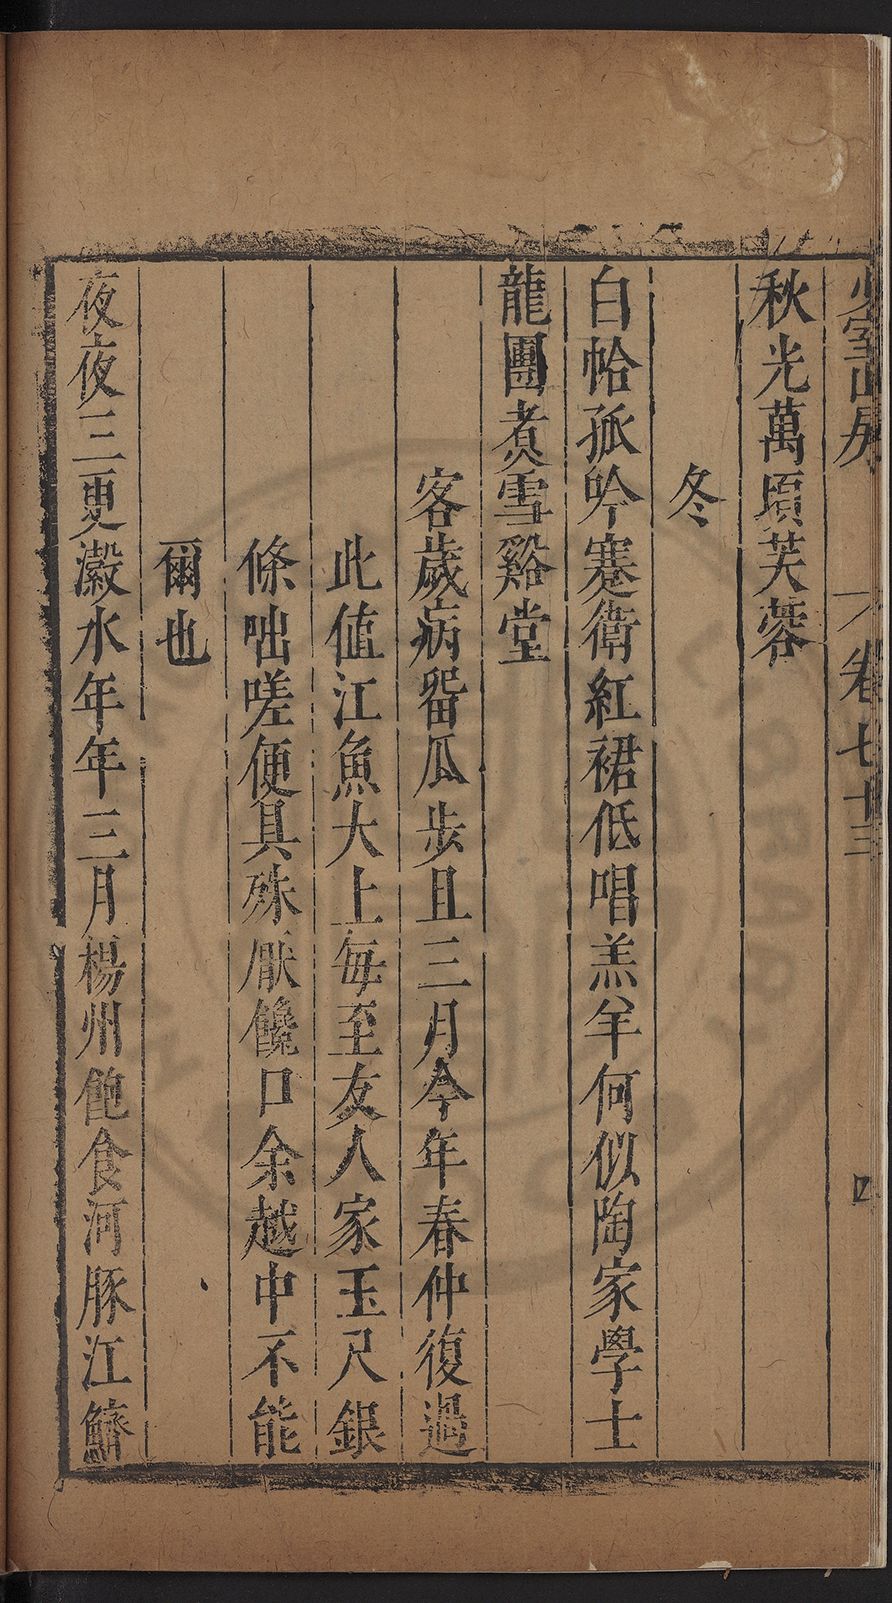 少室山房 卷七十三 四
秋光萬頃芙蓉
冬
白帢孤吟蹇衛紅裙低唱羔羊何似陶家學士
龍團煮雪谿堂
客歲病畱瓜步且三月今年春仲復過
此値江魚大上每至友人家玉尺銀
條咄嗟便具殊厭饞口余越中不能
爾也
夜夜三更瀫水年年三月楊州飽食河豚江鱭